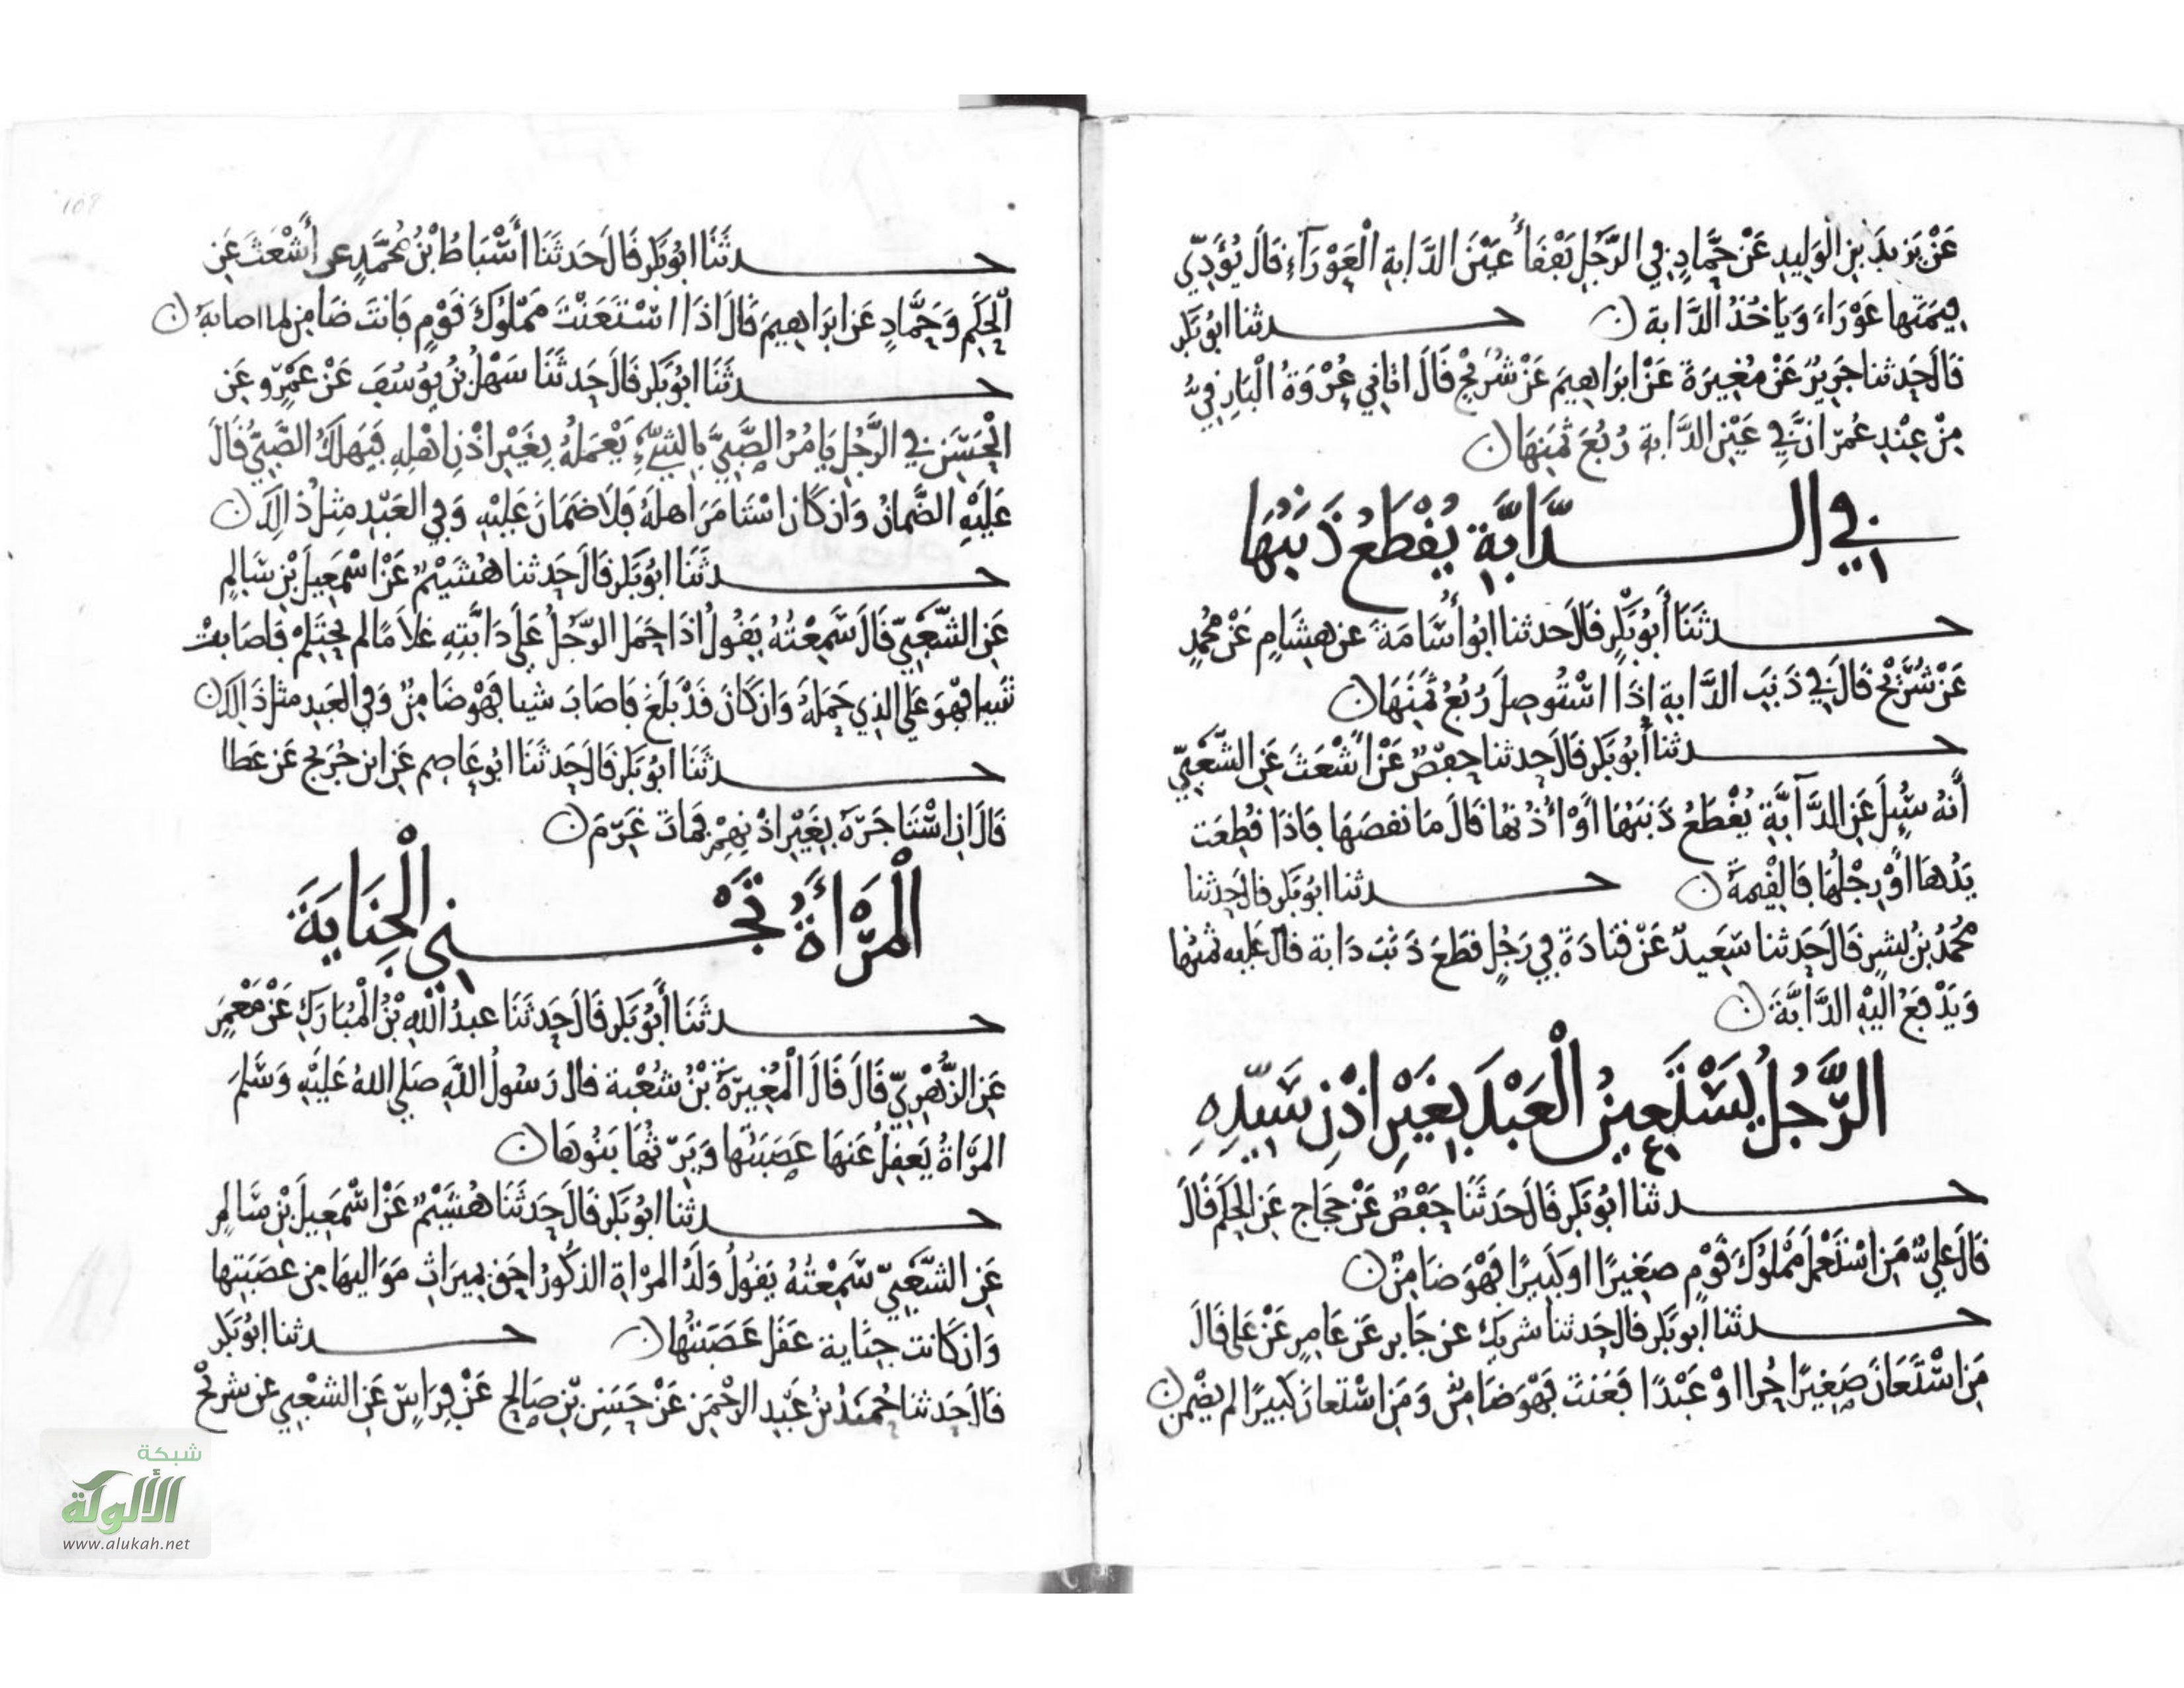 عَنْ يَزِيدَ بنِ الْوَلِيدِ عَنْ حَمَّادٍ فِي الرَّجُلِ يَفْقَأُ عَيْنَ الدَّابةِ الْعَوْرَآءِ قَالَ يُؤَدِّي
قِيمَتَها عَوْرَاءَ وَيَاخُذُ الدَّابة ن حـــدثنا ابُو بَكر
قَالَ حَدثنا جَرِيرٌ عَنْ مُغِيرَةَ عَنْ ابرَاهِيمَ عَنْ شُرَيْحٍ قَالَ اتانِي عُرْوَةُ الْبَارِقِيُّ
مِنْ عِنْدِ عُمَرَ انَّ فِي عَيْنِ الدَّابة رُبُعَ ثَمَنِهَا ن
فِي الـــدَّابَّةِ يُقْطَعُ ذَنَبُهَا
حـــدثَنَا أَبُو بَكْرٍ قَالَ حَدثنا ابُو أُسَامَةَ عن هِشَامٍ عَنْ مُحمدٍ
عَنْ شُرَيْحٍ قَالَ فِي ذَنَبِ الدَّابةِ إذَا اسْتُوصِلَ رُبُعُ ثَمَنِهَا ن
حـــدثنا أَبُو بَكر قَالَ حَدثنا حَفْصٌ عَنْ أَشْعَثَ عَنِ الشَّعْبِيِّ
أَنهُ سُئِلَ عَنِ الدَّآبَّةِ يُقْطَعُ ذَنَبُهَا أَوْ أُذُنُها قَالَ مَا نقصَهَا فَاذَا قُطِعَت
يَدُهَا اوْ رِجْلُهَا فَالْقِيمَةُ ن حـــدثنا ابُو بَكر قال حَدثنا
مُحَمدُ بْنُ بِشرٍ قَالَ حَدثنا سَعِيدٌ عَنْ قتَادَةَ فِي رَجُلٍ قطَعَ ذَنَبَ دَابة قال عَليه ثمنُها
وَيَدْفَعُ الَيْهِ الدَّابَّةَ ن
الرَّجُلُ يَسْتَعِينُ الْعَبْدَ بِغَيْرِ اذْنِ سَيِّدِهِ
حـــدثنا ابُو بَكر قَالَ حَدثَنَا حَفْصٌ عَنْ حَجاج عَنِ الحَكم قَالَ
قَالَ عَلِيٌّ مَنِ اسْتَعْمَلَ مَمْلُوكَ قَوْمٍ صَغِيرًا اوْ كَبِيرًا فَهْوَ ضَامِنٌ ن
حـــدثنا أبو بَكر قال حَدثنا شريك عن جَابر عَنْ عَامِرٍ عَنْ عَلى قَالَ
مَنِ اسْتَعَانَ صَغِيرًا حُرا اوْ عَبْدًا فَعَنتَ فَهْوَ ضَامِنٌ وَمَنِ اسْتعانَ كَبيرًا لم يضْمن ن
حـــدثَنَا ابُو بَكر قَالَ حَدثَنَا أَسْبَاطُ بْنُ مُحَمَّدٍ عن أَشْعَثَ عَنِ
الْحَكَمِ وَحَمَّادٍ عَن ابرَاهِيمَ قَالَ اذَا اسْتَعَنْتَ مَمْلُوكَ قَوْمٍ فَانتَ ضَامِن لما اصابَهُ ن
حـــدثَنَا ابُو بَكر قَالَ حَدثَنَا سَهْلُ بْنُ يُوسُفَ عَنْ عَمْرٍو عَنِ
الْحَسَنِ فِي الرَّجُلِ يَامُرُ الصَّبِيَّ بِالشَّيْءِ يَعْمَلُهُ بِغَيْرِ اذْنِ اهْلِهِ فَيَهلكُ الصَّبِيُّ قَالَ
عَلَيْهِ الضَّمانُ وَان كَانَ اسْتَامَرَ اهلَهُ فَلَا ضَمَانَ عَلَيْهِ وَفِي العَبْدِ مِثلُ ذَالِكَ ن
حـــدثَنَا ابُو بَكر قَالَ حَدثنا هُشَيْمٌ عَنْ اسْمَعِيلَ بْنِ سَالِمٍ
عَنِ الشَّعْبِيِّ قَالَ سَمِعْتُهُ يَقُولُ اذَا حَمَل الرَّجُلُ عَلَى دَابَّتِهِ غلَامًا لم يَحْتَلِمْ فَاصَابتْ
شَيا فهْوَ عَلَى الذي حَمَلَهُ وَان كَانَ قَدْ بَلَغَ فَاصَابَ شيا فَهْوَ ضَامِنٌ وَفِي العَبِيدِ مثل ذَالِكَ ن
حـــدثَنَا ابُو بَكر قَالَ حَدثَنَا ابُو عَاصِم عَنِ ابن جُرَيج عَن عَطا
قَالَ انِ اسْتَاجَرَهُ بِغَيْرِ اذْنِهِمْ فَمَاتَ غَرِمَ ن
الْمَرْأَةُ تَجْـــنِي الْجِنَايَةَ
حـــدثَنَا أَبُو بَكر قَالَ حَدثَنَا عبدُ اللهِ بْنُ الْمُبَارَكِ عَنْ مَعْمَرٍ
عَنِ الزُّهْرِيِّ قَالَ قَالَ الْمُغِيرَةُ بْنُ شُعْبة قال رَسُولُ اللَّهِ صَلى اللهُ عَلَيْهِ وَسَلمَ
المَرْاةُ يَعقِلُ عَنهَا عَصَبَتُها وَيَرِثُهَا بَنُوهَا ن
حـــدثنا ابُو بَكر قَالَ حَدثَنَا هُشَيْمٌ عَنْ اسْمَعِيلَ بْنِ سَالِمٍ
عَنِ الشَّعْبِيِّ سَمِعْتُهُ يَقُولُ وَلَدُ المَرْاةِ الذكُورُ احَق بِمِيرَاثِ مَوَاليهَا مِن عصَبَتِها
وَان كَانت جِنَاية عَقلَ عَصَبَتُها ن حـــدثنا ابُو بَكر
قَالَ حَدثنا حُمَيْدُ بْنُ عَبْدِ الرَّحْمَنِ عَنْ حَسَنِ بْنِ صَالِحٍ عَنْ فِرَاسٍ عَنِ الشَّعْبِي عن شريْحٍ
شبكة
الألوكة
www.alukah.net